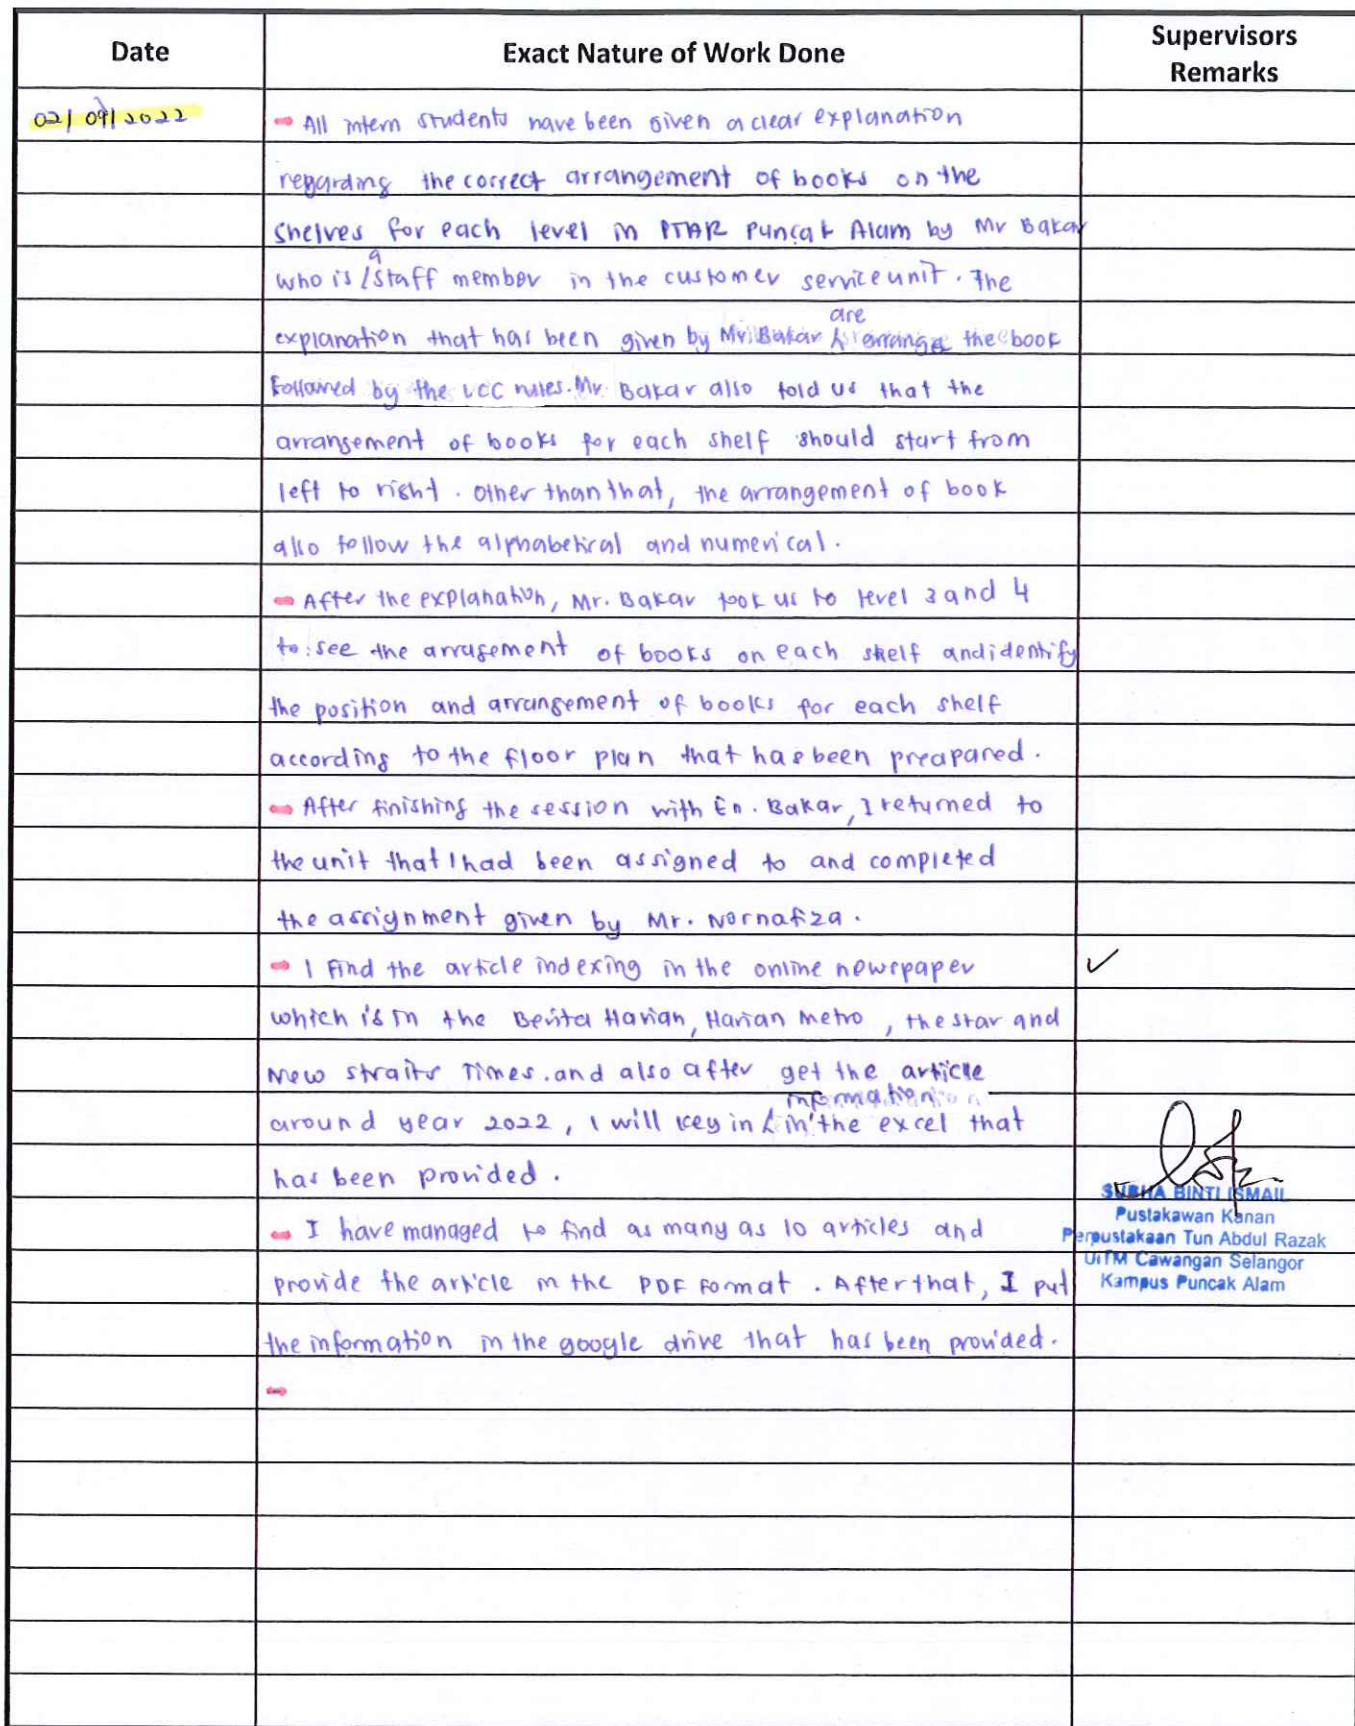 Date Exact Nature of Work Done Supervisors Remarks
02/09/2022 All intern students have been given a clear explanation
regarding the correct arrangement of books on the
shelves for each level in PTAR Puncak Alam by Mr Bakar
who is a staff member in the customer service unit. The
explanation that has been given by Mr. Bakar are arrange the book
followed by the LCC rules. Mr. Bakar also told us that the
arrangement of books for each shelf should start from
left to right. Other than that, the arrangement of book
also follow the alphabetical and numerical.
After the explanation, Mr. Bakar took us to level 3 and 4
to see the arragement of books on each shelf and identify
the position and arrangement of books for each shelf
according to the floor plan that has been preapared.
After finishing the session with En. Bakar, I returned to
the unit that I had been assigned to and completed
the assignment given by Mr. Nornafiza.
I find the article indexing in the online newspaper ✓
which is in the Berita Harian, Harian Metro, the star and
New Straits Times. and also after get the article
around year 2022, I will key in information in the excel that
has been provided.
I have managed to find as many as 10 articles and
provide the article in the PDF format. After that, I put
the information in the google drive that has been provided.
BINTI ISMAIL
Pustakawan Kanan
Perpustakaan Tun Abdul Razak
UiTM Cawangan Selangor
Kampus Puncak Alam